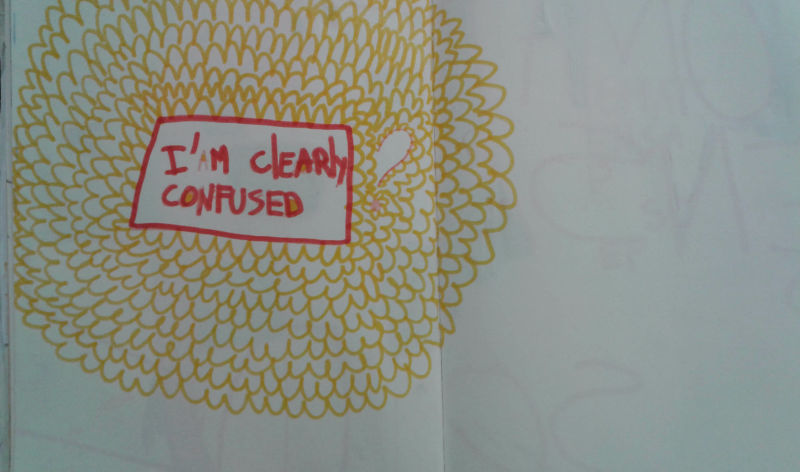 I'AM CLEARLY
CONFUSED